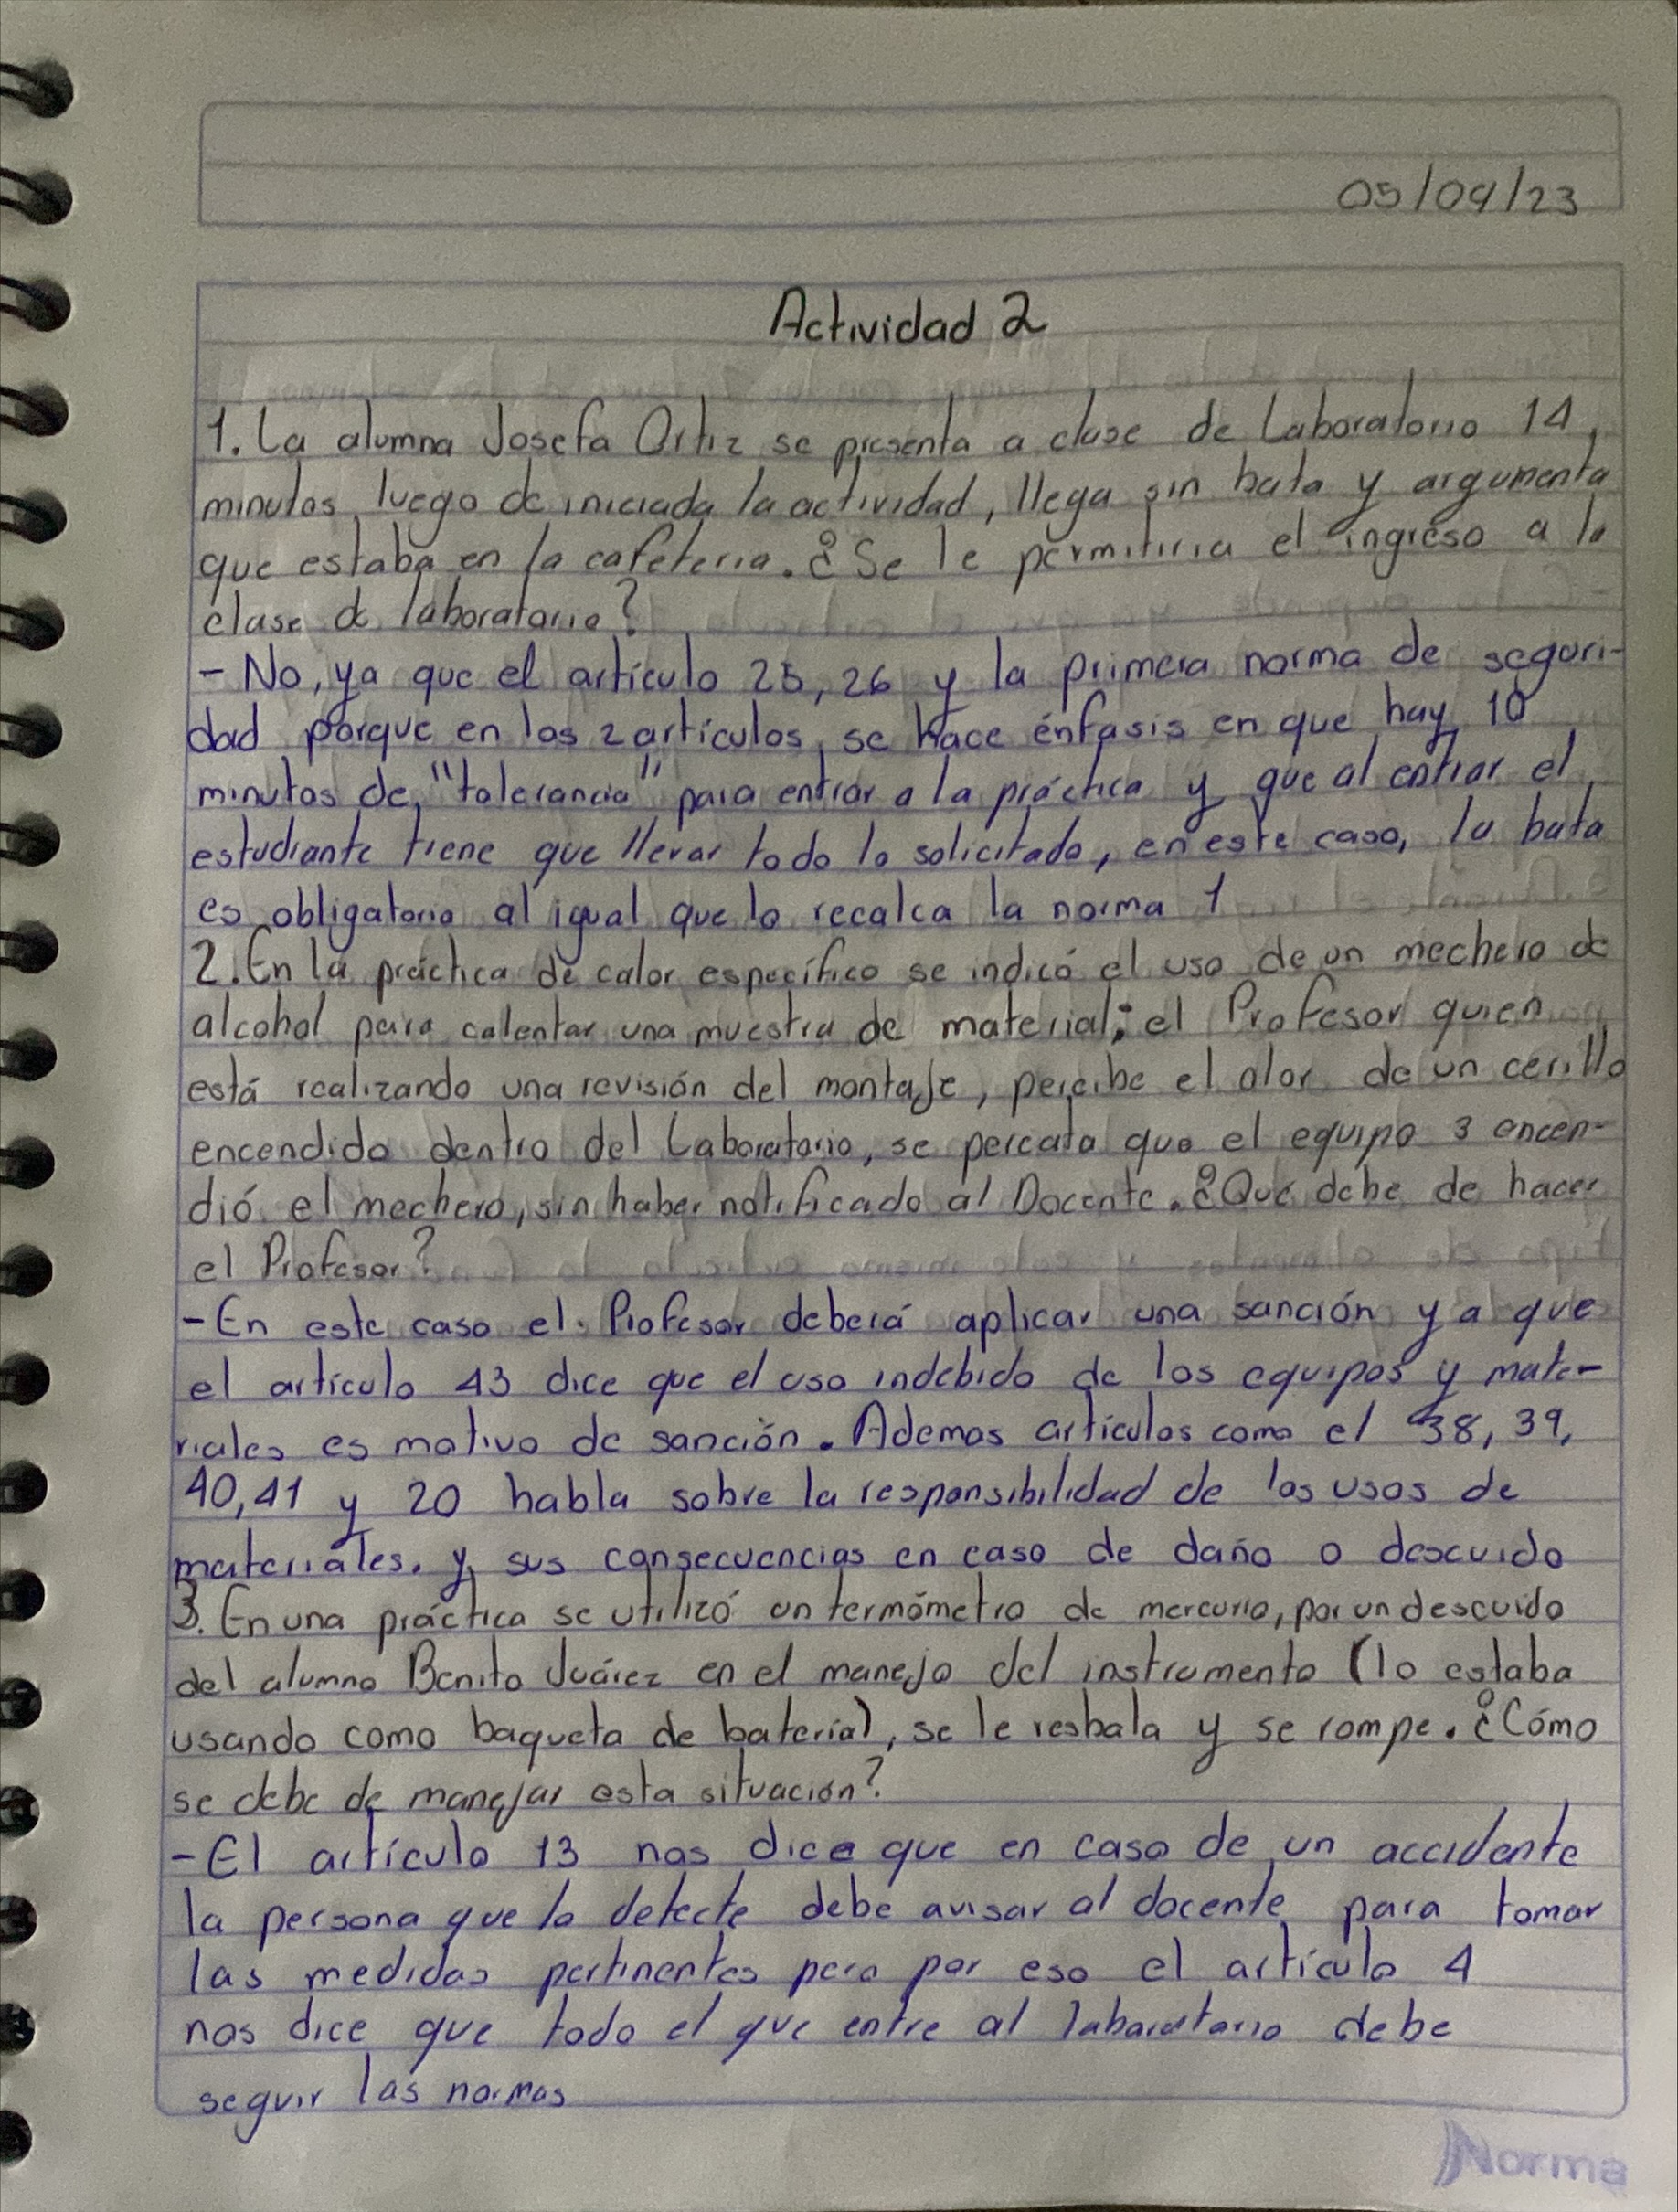 05/09/23
Actividad 2
1. La alumna Josefa Ortiz se presenta a clase de Laboratorio 14
minutos luego de iniciada la actividad, llega sin bata y argumenta
que estaba en la cafeteria. ¿Se le permitiria el ingreso a la
clase de laboratorio?
- No, ya que el artículo 25, 26 y la primera norma de seguri-
dad porque en los 2 artículos, se hace énfasis en que hay 10
minutos de "tolerancia" para entrar a la práctica y que al entrar el
estudiante tiene que llevar todo lo solicitado, en este caso, la bata
es obligatoria al igual que lo recalca la norma 1
2. En la práctica de calor específico se indicó el uso de un mechero de
alcohol para calentar una muestra de material; el Profesor quien
está realizando una revisión del montaje, percibe el olor de un cerillo
encendido dentro del Laboratorio, se percata que el equipo 3 encen-
dió el mechero, sin haber notificado al Docente. ¿Qué debe de hacer
el Profesor?
- En este caso el Profesor deberá aplicar una sanción ya que
el artículo 43 dice que el uso indebido de los equipos y mate-
riales es motivo de sanción. Ademas artículos como el 38, 39,
40, 41 y 20 habla sobre la responsibilidad de los usos de
materiales. y sus consecuencias en caso de daño o descuido
3. En una práctica se utilizó un termómetro de mercurio, por un descuido
del alumno Benito Juárez en el manejo del instrumento (lo estaba
usando como baqueta de bateria), se le resbala y se rompe. ¿Cómo
se debe de manejar esta situación?
- El artículo 13 nos dice que en caso de un accidente
la persona que lo detecte debe avisar al docente para tomar
las medidas pertinentes pero por eso el artículo 4
nos dice que todo el que entre al laboratorio debe
seguir las normas
Norma